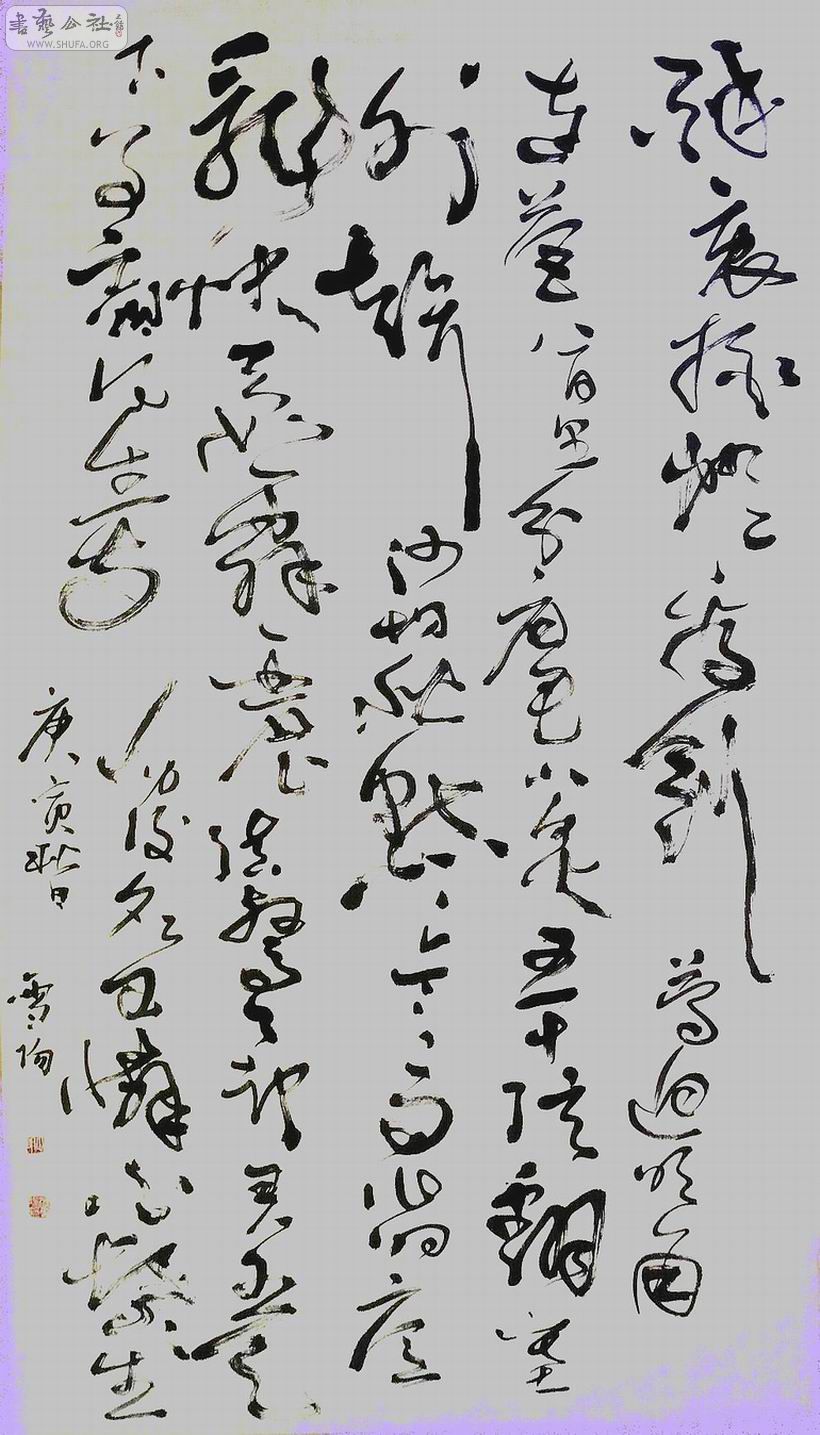 書藝公社
WWW.SHUFA.ORG
醉裏挑燈看劍夢迴吹角
連營八百里分麾下炙五十弦翻塞
外聲沙場秋點兵馬作的盧
飛快弓如霹靂弦驚了却君王天
下事贏得生前身後名可憐白髮生
庚寅